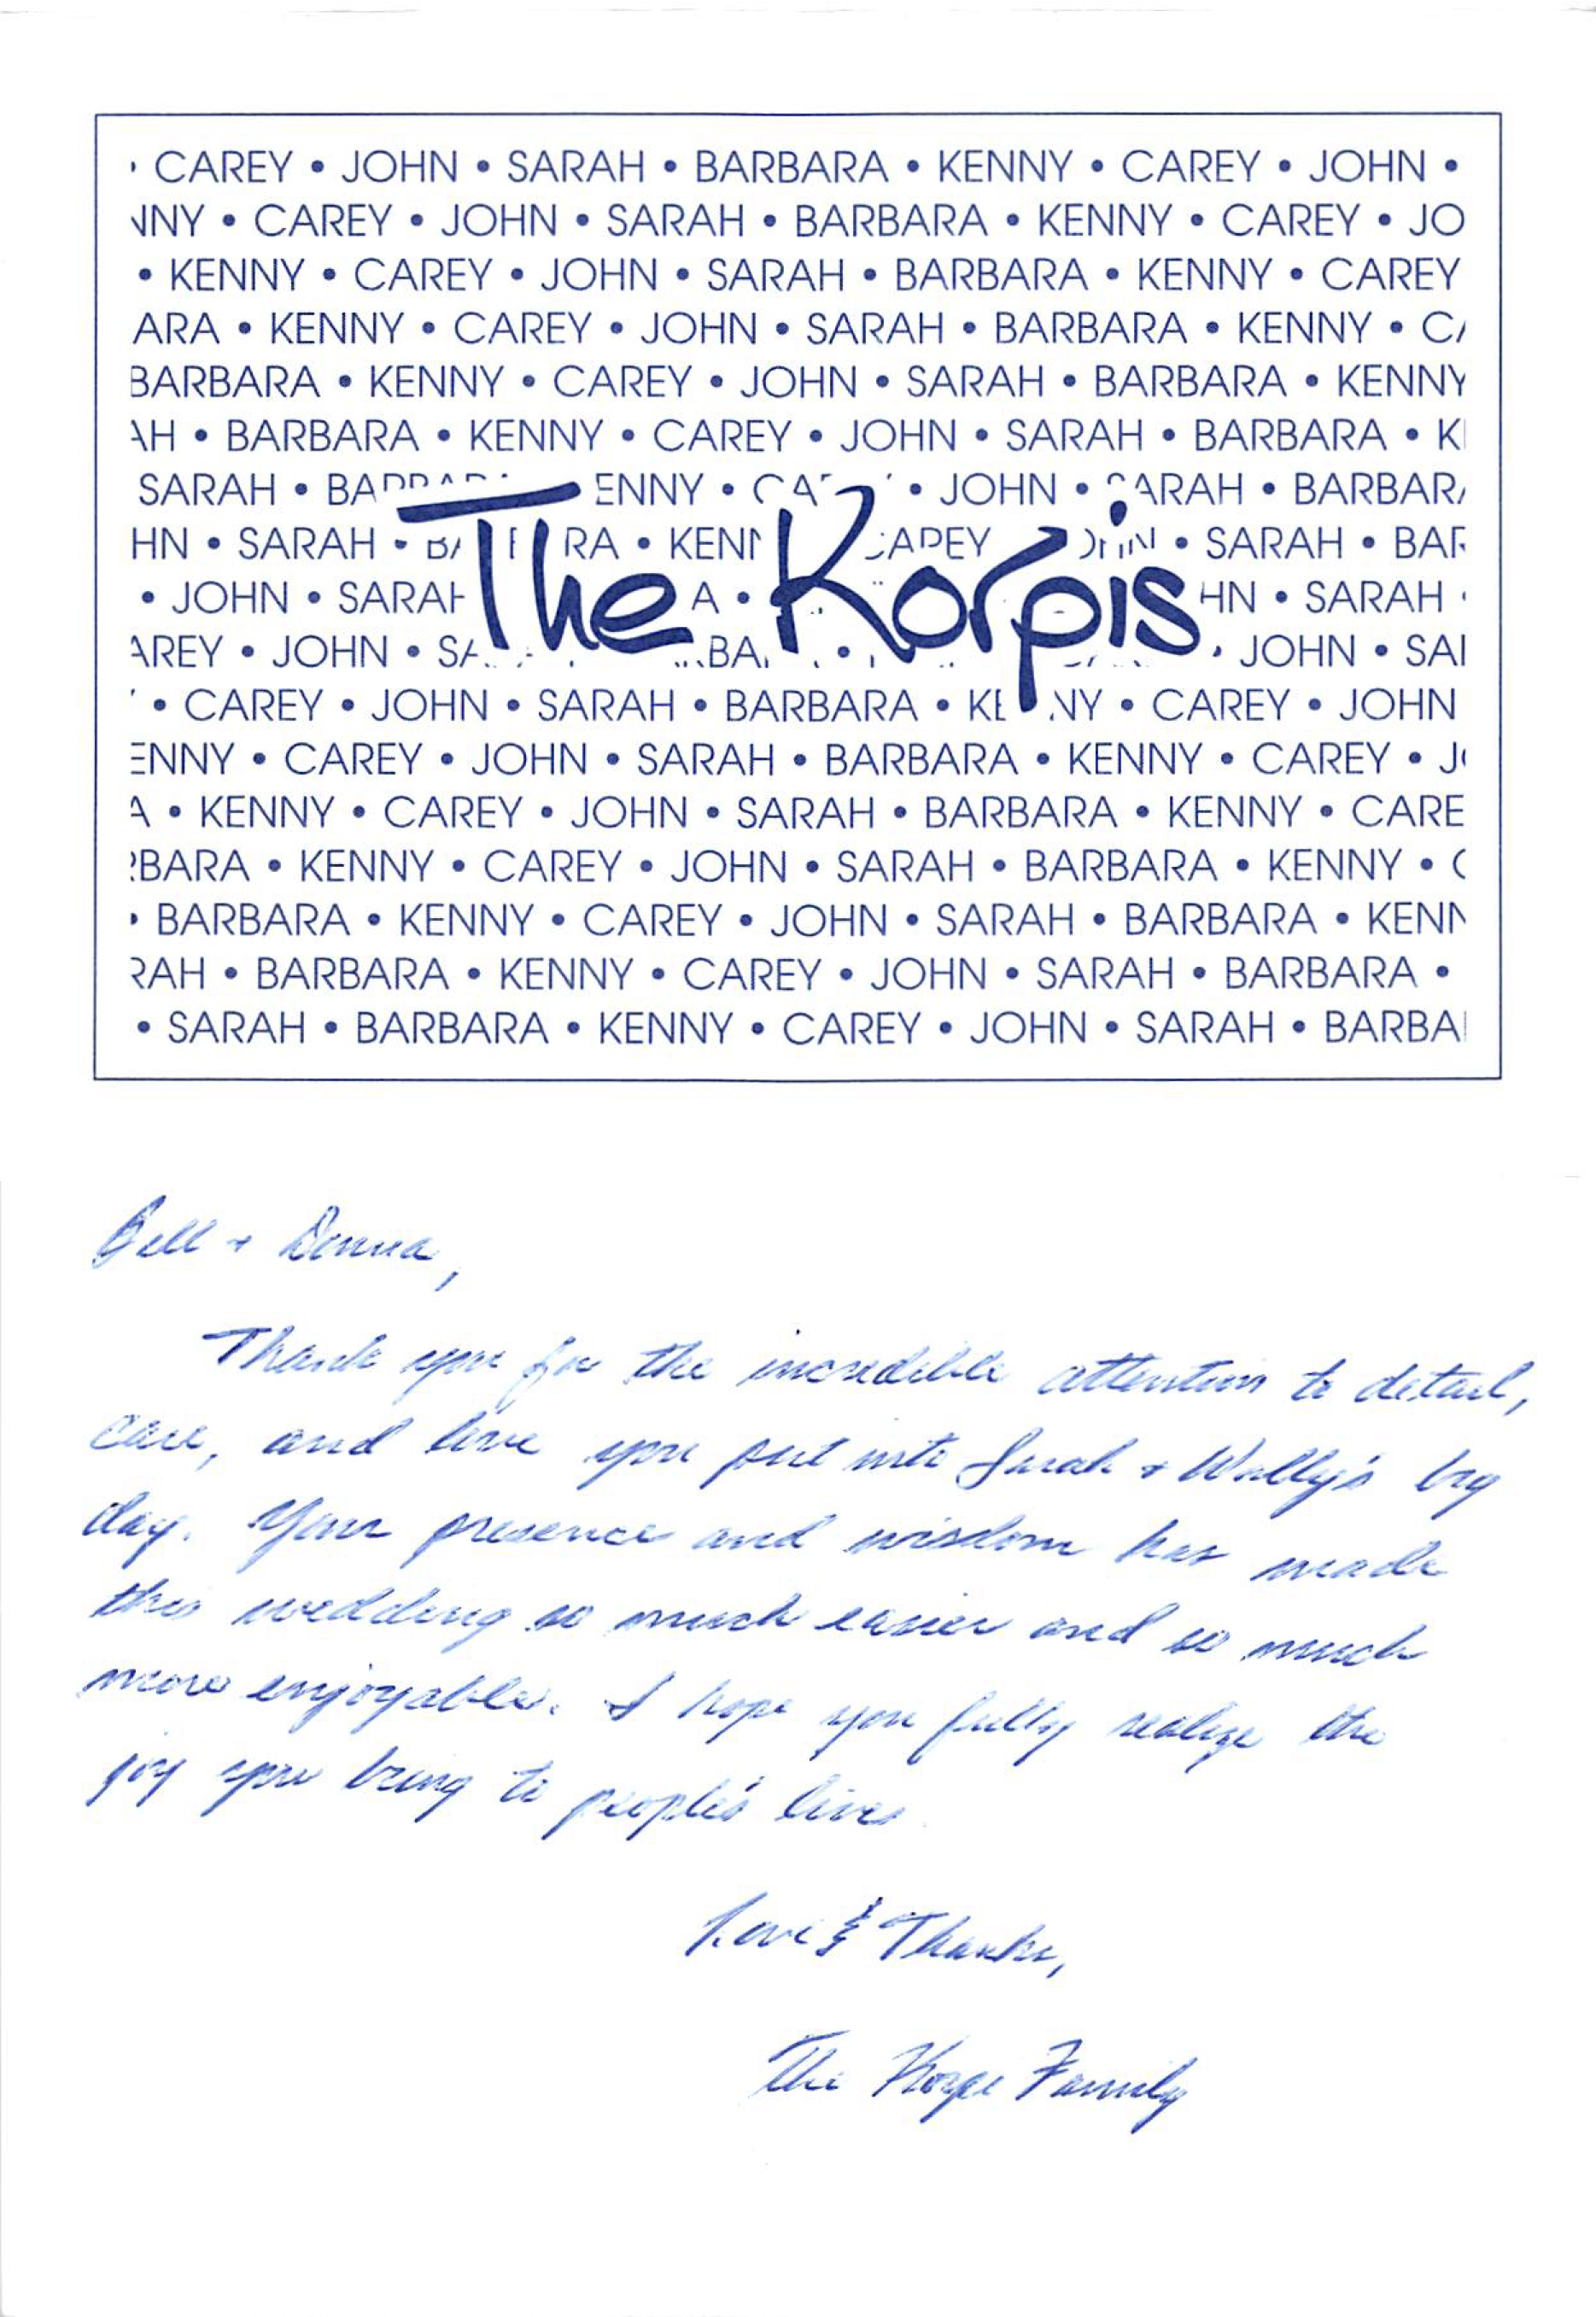 • CAREY • JOHN • SARAH • BARBARA • KENNY • CAREY • JOHN •
NNY • CAREY • JOHN • SARAH • BARBARA • KENNY • CAREY • JO
• KENNY • CAREY • JOHN • SARAH • BARBARA • KENNY • CAREY
ARA • KENNY • CAREY • JOHN • SARAH • BARBARA • KENNY • CA
BARBARA • KENNY • CAREY • JOHN • SARAH • BARBARA • KENNY
AH • BARBARA • KENNY • CAREY • JOHN • SARAH • BARBARA • K
SARAH • BARBARA ENNY • CA • JOHN • SARAH • BARBARA
HN • SARAH • BA RA • KENN CAREY JOHN • SARAH • BAR
The Korpis
• JOHN • SARAH A • HN • SARAH •
AREY • JOHN • SA BA • JOHN • SAR
• CAREY • JOHN • SARAH • BARBARA • KE NY • CAREY • JOHN
ENNY • CAREY • JOHN • SARAH • BARBARA • KENNY • CAREY • JO
A • KENNY • CAREY • JOHN • SARAH • BARBARA • KENNY • CARE
RBARA • KENNY • CAREY • JOHN • SARAH • BARBARA • KENNY • C
• BARBARA • KENNY • CAREY • JOHN • SARAH • BARBARA • KENN
RAH • BARBARA • KENNY • CAREY • JOHN • SARAH • BARBARA •
• SARAH • BARBARA • KENNY • CAREY • JOHN • SARAH • BARBA
Bill + Donna,
Thank you for the incredible attention to detail,
care, and love you put into Sarah + Wally's big
day. Your presence and wisdom has made
this wedding so much easier and so much
more enjoyable. I hope you fully realize the
joy you bring to people's lives.
Love & Thanks,
The Korpi Family